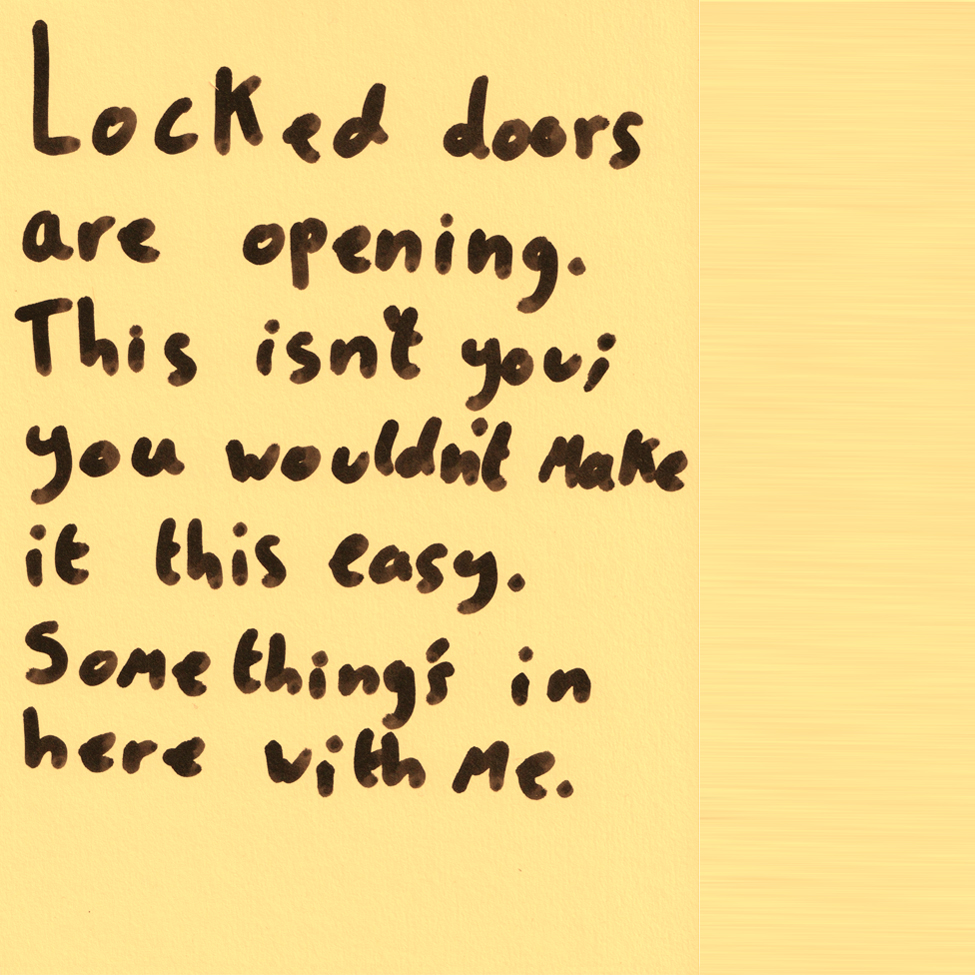 Locked doors
are opening.
This isn't you;
you wouldn't make
it this easy.
Something's in
here with me.